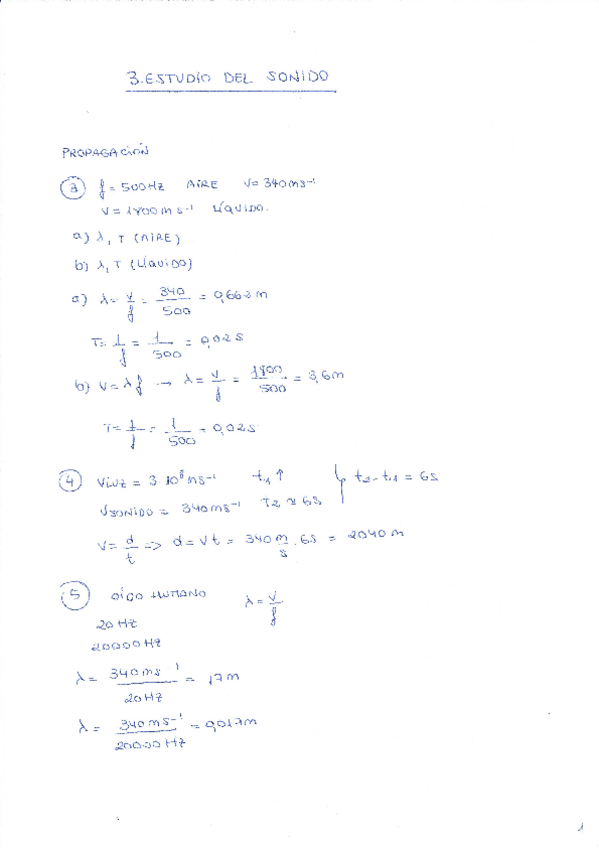 3. ESTUDIO DEL SONIDO
PROPAGACIÓN
3 f = 500 Hz AIRE V = 340 ms⁻¹
V = 1800 ms⁻¹ LÍQUIDO.
a) λ, T (AIRE)
b) λ, T (LÍQUIDO)
a) λ = v/f = 340/500 = 0,662 m
T = 1/f = 1/500 = 0,02 s
b) V = λ f → λ = v/f = 1800/500 = 3,6 m
T = 1/f = 1/500 = 0,02 s
4 VLUZ = 3·10⁸ ms⁻¹ t₁ ↑ } t₂ - t₁ = 6s
VSONIDO = 340 ms⁻¹ T2 ≈ 6s
V = d/t => d = V t = 340 m/s · 6s = 2040 m
5 OÍDO HUMANO λ = v/f
20 Hz
20000 Hz
λ = 340 ms⁻¹/20 Hz = 17 m
λ = 340 ms⁻¹/20000 Hz = 0,017 m
1